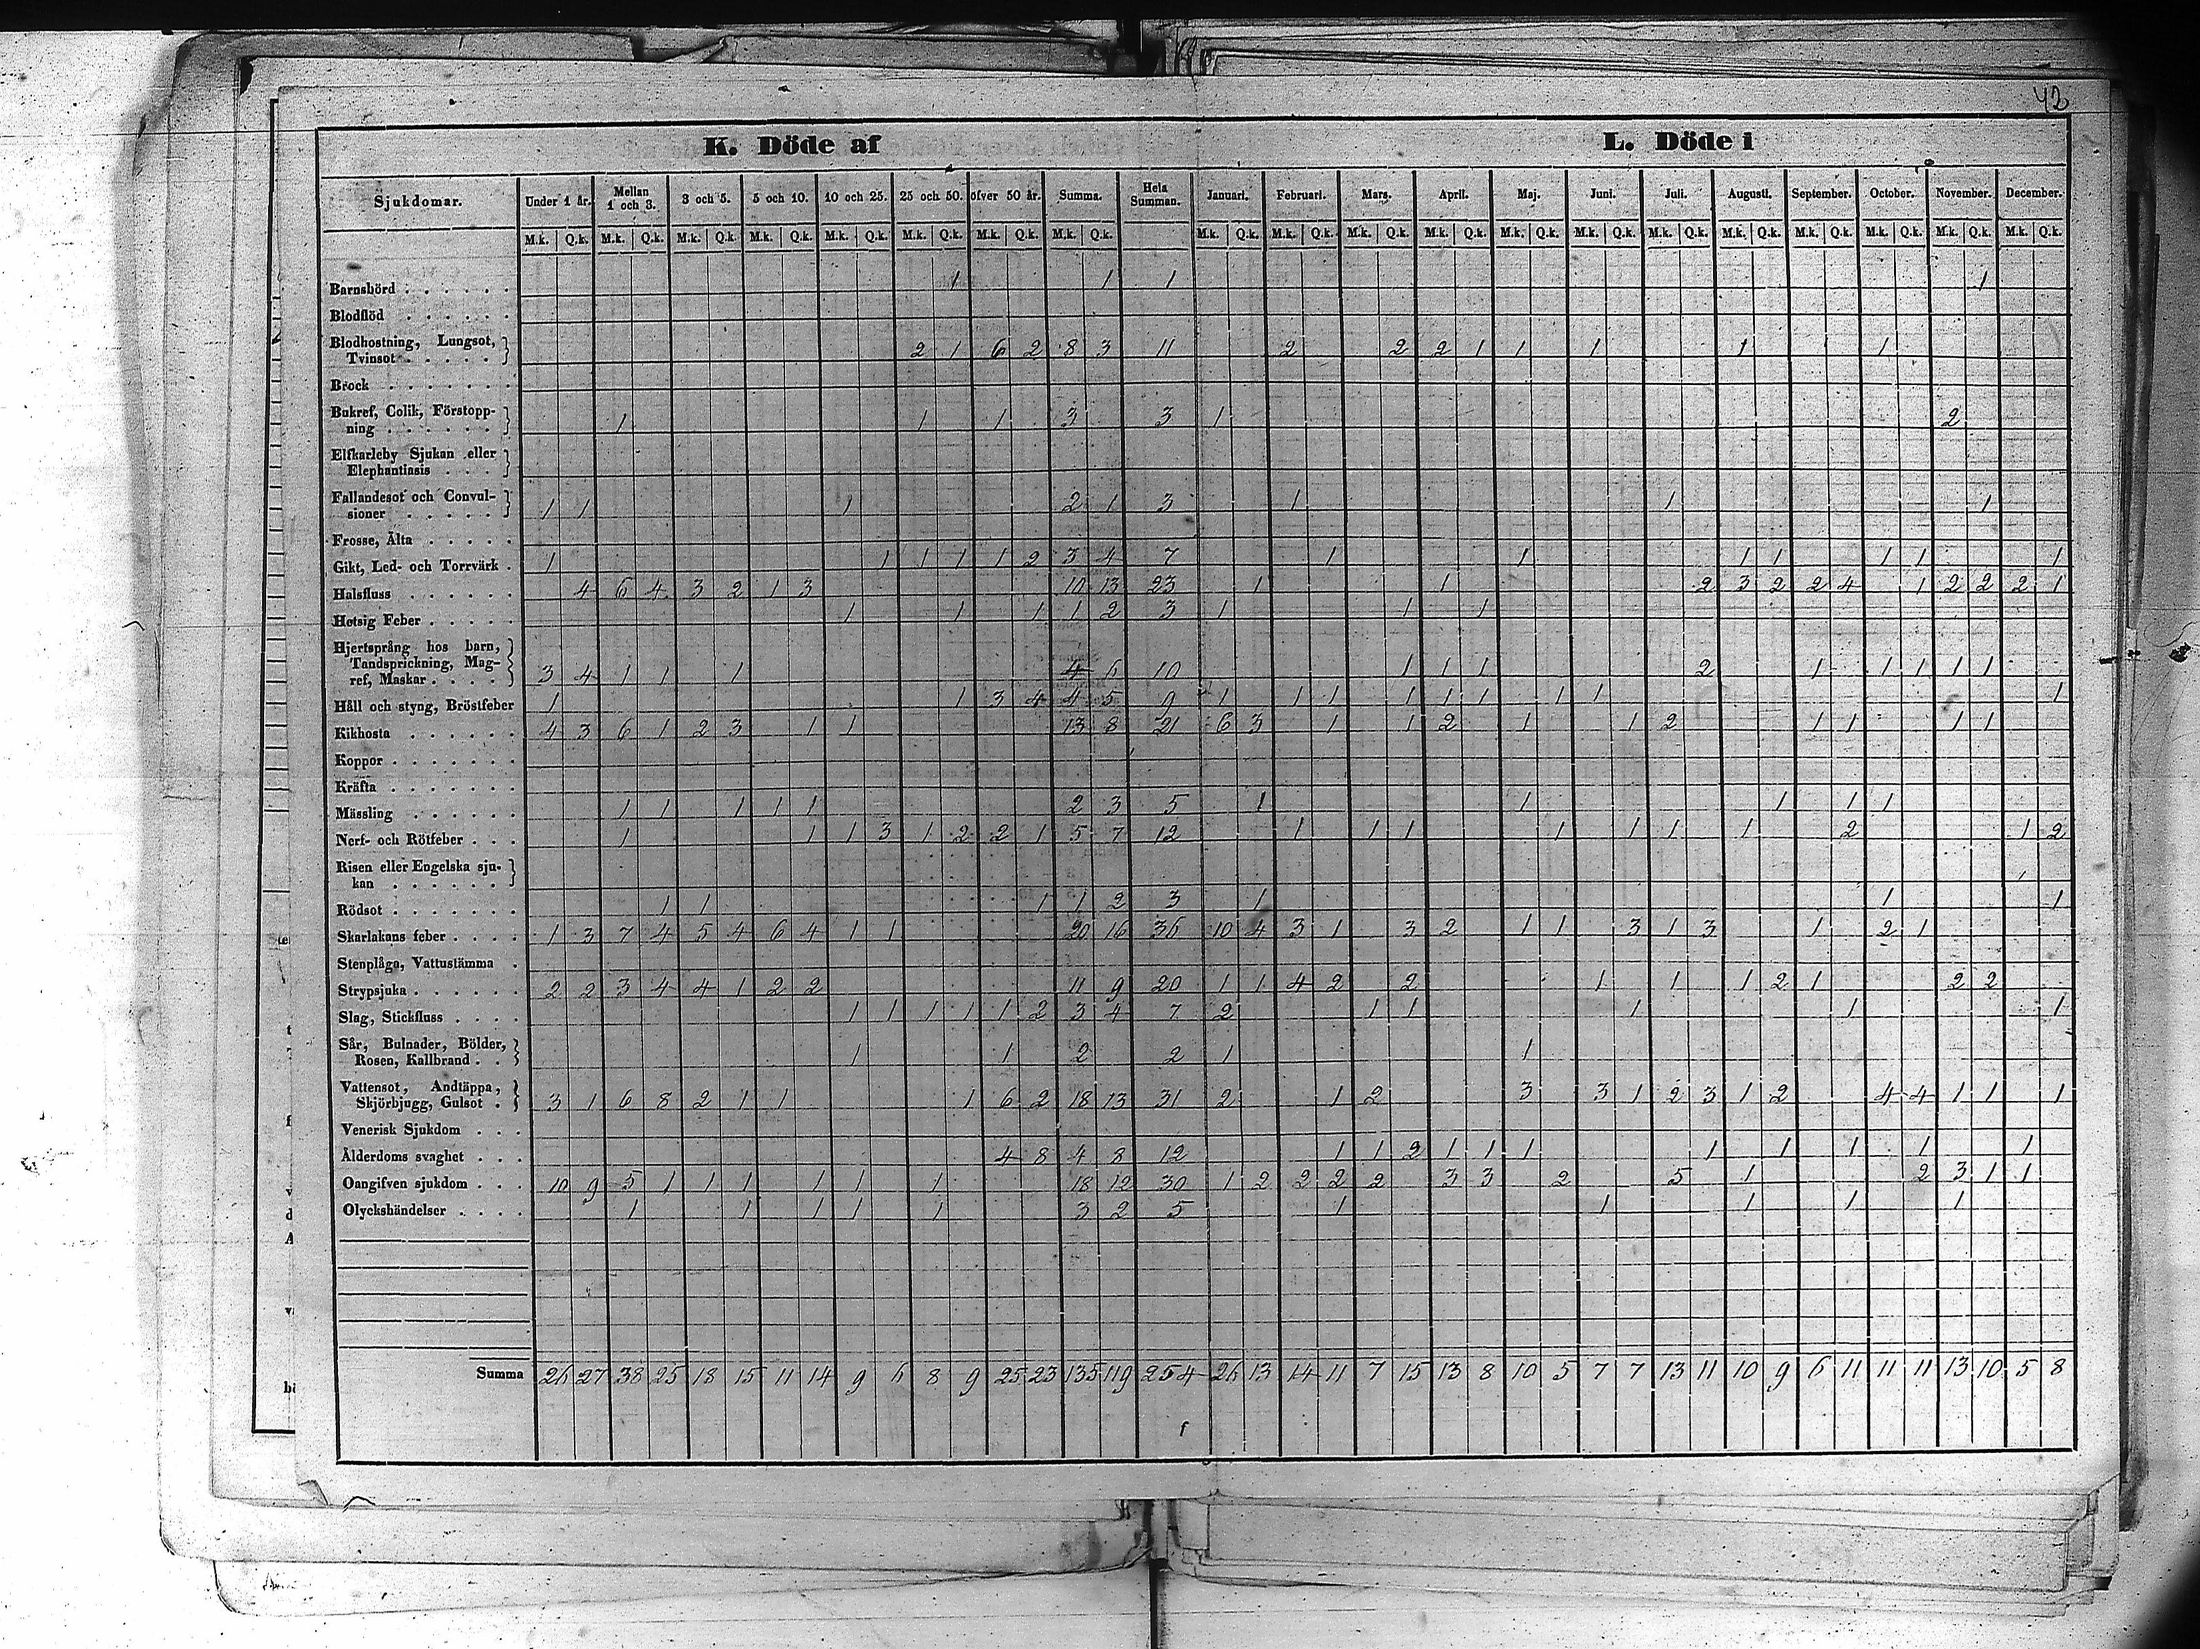 42
K. Döde af L. Döde i
Sjukdomar. Under 1 år. Mellan 1 och 3. 3 och 5. 5 och 10. 10 och 25. 25 och 50. öfver 50 år. Summa. Hela Summan. Januari. Februari. Mars. April. Maj. Juni. Juli. Augusti. September. October. November. December.
M.k. Q.k. M.k. Q.k. M.k. Q.k. M.k. Q.k. M.k. Q.k. M.k. Q.k. M.k. Q.k. M.k. Q.k. M.k. Q.k. M.k. Q.k. M.k. Q.k. M.k. Q.k. M.k. Q.k. M.k. Q.k. M.k. Q.k. M.k. Q.k. M.k. Q.k. M.k. Q.k. M.k. Q.k. M.k. Q.k.
Barnsbörd 1 1 1 1
Blodflöd
Blodhostning, Lungsot,
Tvinsot 2 1 6 2 8 3 11 2 2 2 1 1 1 1 1
Brock
Bukref, Colik, Förstopp-
ning 1 1 1 3 3 1 2
Elfkarleby Sjukan eller
Elephantiasis
Fallandesot och Convul-
sioner 1 1 1 2 1 3 1 1 1
Frosse, Älta
Gikt, Led- och Torrvärk 1 1 1 1 1 2 3 4 7 1 1 1 1 1 1 1
Halsfluss 4 6 4 3 2 1 3 10 13 23 1 1 2 3 2 2 4 1 2 2 2 1
Hetsig Feber 1 1 1 1 2 3 1 1 1
Hjertsprång hos barn,
Tandsprickning, Mag-
ref, Maskar 3 4 1 1 1 4 6 10 1 1 1 2 1 1 1 1 1
Håll och styng, Bröstfeber 1 1 3 4 4 5 9 1 1 1 1 1 1 1 1 1
Kikhosta 4 3 6 1 2 3 1 1 13 8 21 6 3 1 1 2 1 1 2 1 1 1 1
Koppor
Kräfta
Mässling 1 1 1 1 1 2 3 5 1 1 1 1 1
Nerf- och Rötfeber 1 1 1 3 1 2 2 1 5 7 12 1 1 1 1 1 1 1 2 1 2
Risen eller Engelska sju-
kan
Rödsot 1 1 1 1 2 3 1 1 1
Skarlakans feber 1 3 7 4 5 4 6 4 1 1 20 16 36 10 4 3 1 3 2 1 1 3 1 3 1 2 1
Stenplåga, Vattustämma
Strypsjuka 2 2 3 4 4 1 2 2 11 9 20 1 1 4 2 2 1 1 1 2 1 2 2
Slag, Stickfluss 1 1 1 1 1 2 3 4 7 2 1 1 1 1 1
Sår, Bulnader, Bölder,
Rosen, Kallbrand 1 1 2 2 1 1
Vattensot, Andtäppa,
Skjörbjugg, Gulsot 3 1 6 8 2 1 1 1 6 2 18 13 31 2 1 2 3 3 1 2 3 1 2 4 4 1 1 1
Venerisk Sjukdom
Ålderdoms svaghet 4 8 4 8 12 1 1 2 1 1 1 1 1 1 1 1
Oangifven sjukdom 10 9 5 1 1 1 1 1 1 18 12 30 1 2 2 2 2 3 3 2 5 1 2 3 1 1
Olyckshändelser 1 1 1 1 1 3 2 5 1 1 1 1 1
Summa 26 27 38 25 18 15 11 14 9 6 8 9 25 23 135 119 254 26 13 14 11 7 15 13 8 10 5 7 7 13 11 10 9 6 11 11 11 13 10 5 8